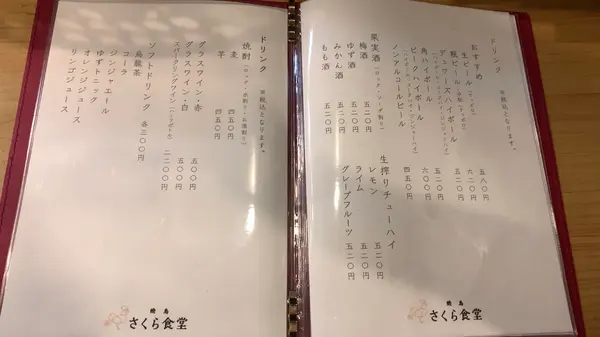 ドリンク ※税込となります。
おすすめ
生ビール 五八〇円
瓶ビール 六二〇円
デュワーズハイボール 五二〇円
角ハイボール 五二〇円
ピークハイボール 六〇〇円
ノンアルコールビール 四五〇円
果実酒
梅酒 五二〇円
ゆず酒 五二〇円
みかん酒 五二〇円
もも酒 五二〇円
生搾りチューハイ
レモン 五二〇円
ライム 五二〇円
グレープフルーツ 五二〇円
焼鳥
さくら食堂
ドリンク ※税込となります。
焼酎（ロック・水割り・お湯割り）
麦 四五〇円
芋 四五〇円
グラスワイン・赤 五〇〇円
グラスワイン・白 五〇〇円
スパークリングワイン 二二〇〇円
ソフトドリンク 各三〇〇円
烏龍茶
コーラ
ジンジャエール
ゆずトニック
オレンジジュース
リンゴジュース
焼鳥
さくら食堂